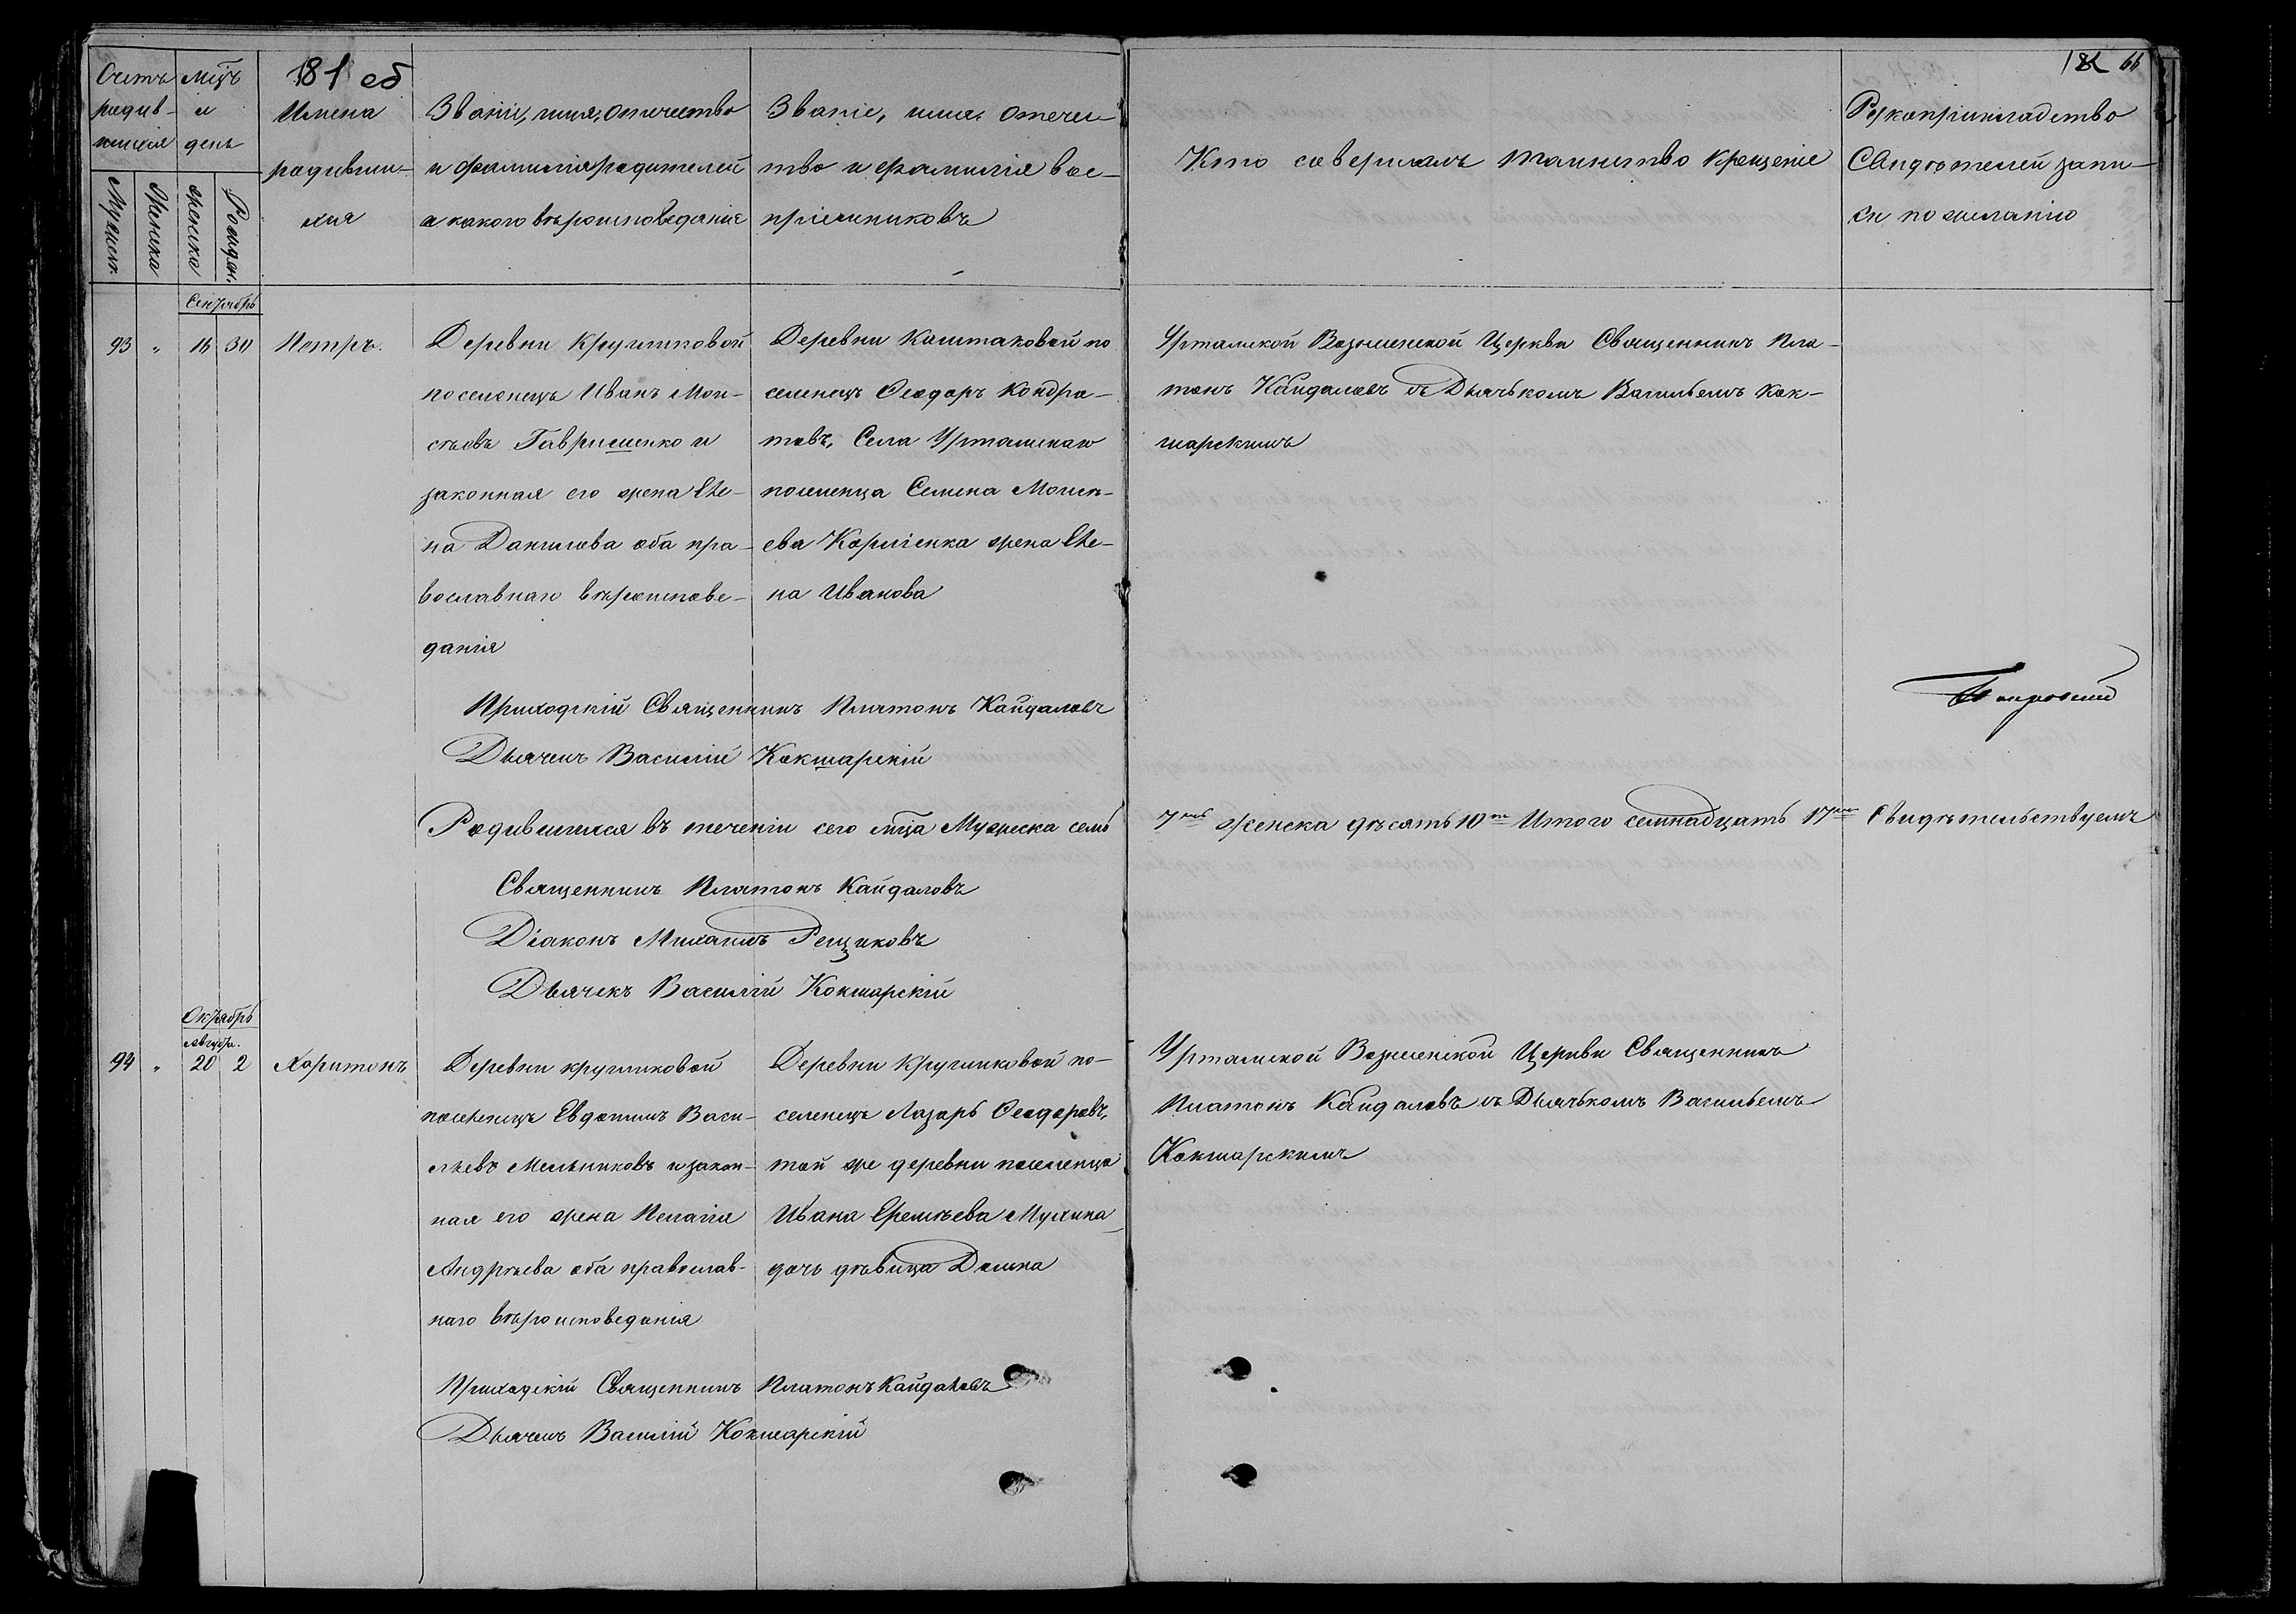 181 об
182 66
Счетъ родив-шихся
Мужеск. Женска
мцъ и день
женска Рожден.
Имена родивши-хся
Званіе, имя, отчество
и фамилія родителей
и какого вѣроисповеданія
Званіе, имя, отечес-
тво и фамилія вос-
пріемниковъ
Кто совершалъ таинство крещеніе
Рукоприкладство
Свидѣтелей запи-
си по желанію
Сентябрь
93 " 16 30 Петръ.
Деревни Кругликовой
поселенецъ Иванъ Мои-
сѣевъ Гавришенко и
законная его жена Еле-
на Данилова оба пра-
вославнаго вѣроиспове-
данія
Деревни Каштаковой по
селенецъ Ѳеодоръ Кондра-
товъ, Села Уртамскаго
поселенца Семена Моисѣ-
ева Корніенка жена Еле-
на Иванова
Уртамской Вознесенской Церкви Священникъ Пла-
тонъ Кайдаловъ съ Дьячькомъ Васильемъ Кок-
шарскимъ
Приходскій Священникъ Платонъ Кайдаловъ
Дьячекъ Василій Кокшарскій
Родившихся въ теченіи сего мца Мужеска семь 7мь женска десять 10ть Итого семнадцать 17ть Свидѣтельствуемъ
Священникъ Платонъ Кайдаловъ
Діаконъ Михаилъ Рещиковъ
Дьячекъ Василій Кокшарскій
Октябрь
94 " 20 2 Харитонъ
Деревни кругликовой
поселенецъ Евдокимъ Васи-
льевъ Мельниковъ и закон-
ная его жена Пелагія
Андрѣева оба православ-
наго вѣроисповеданія
Деревни Кругликовой по-
селенецъ Лазарь Ѳеодоровъ,
той же деревни поселенца
Ивана Еремѣева Мухина
дочь дѣвица Домна
Уртамской Вознесенской Церкви Священникъ
Платонъ Кайдаловъ съ Дьячькомъ Васильемъ
Кокшарскимъ
Приходскій Священникъ Платонъ Кайдаловъ
Дьячекъ Василій Кокшарскій